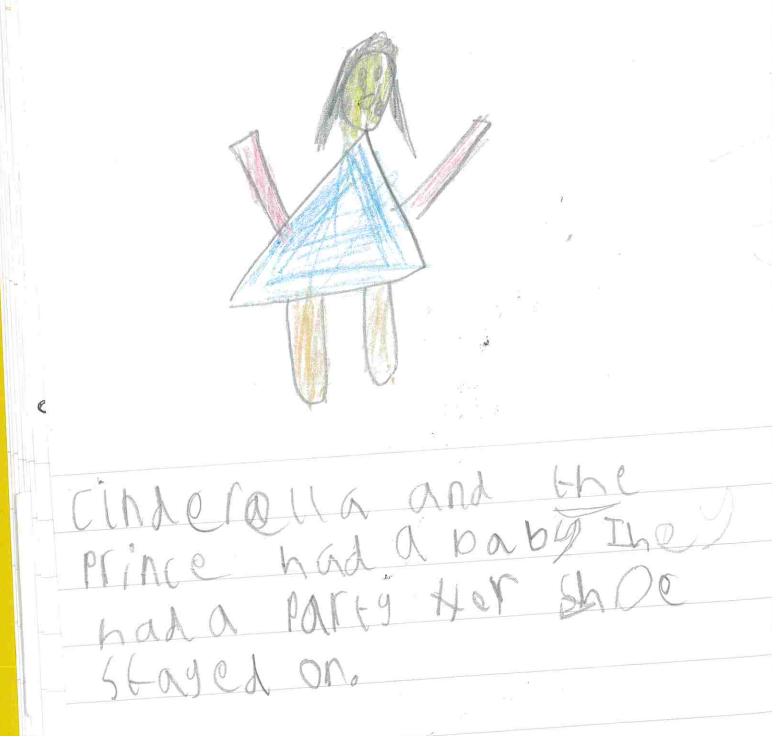 Cinderella and the
Prince had a baby They
had a Party Her shoe
stayed on.